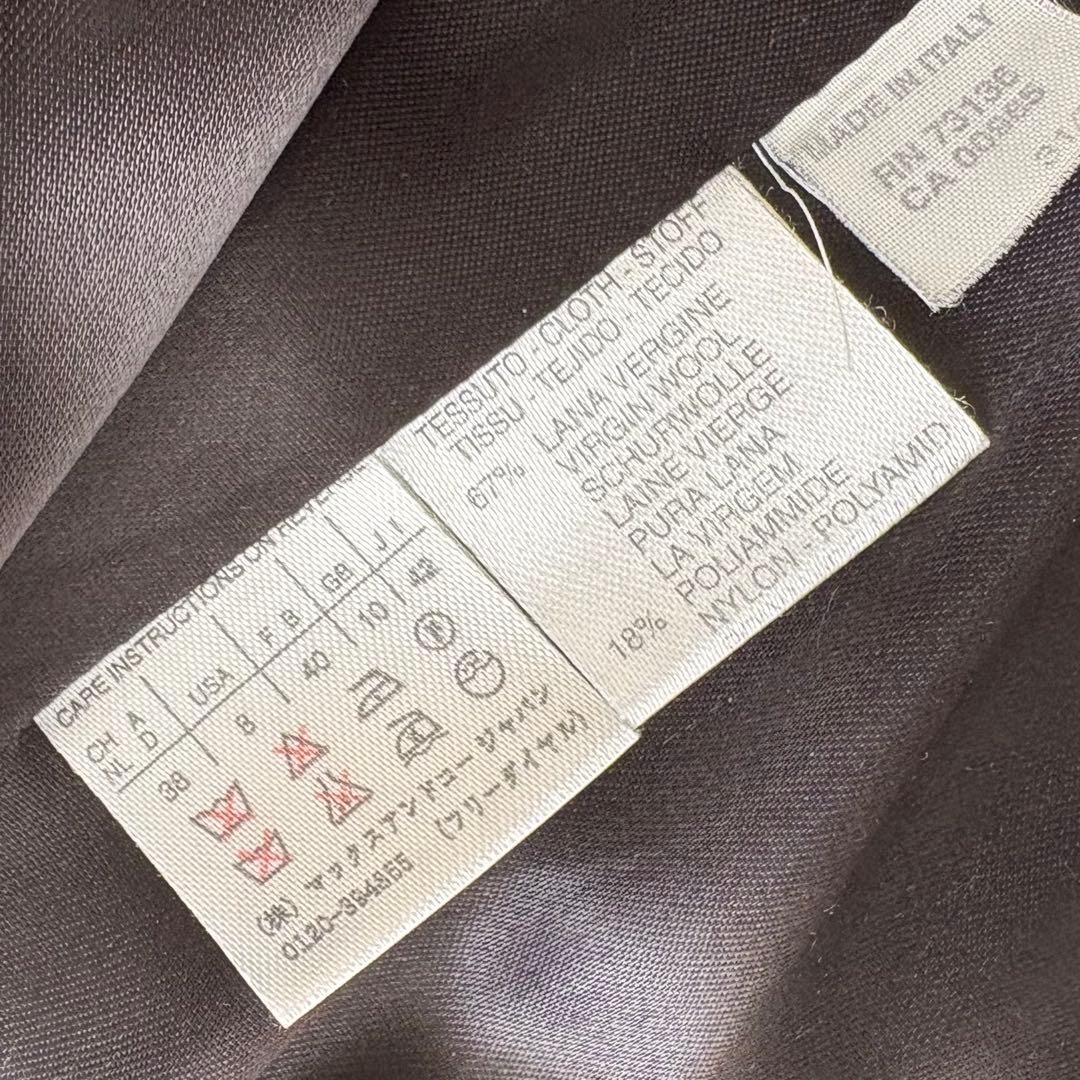 MADE IN ITALY
RN 73136
CA 00965
TESSUTO - CLOTH - STOFF
TISSU - TEJIDO - TECIDO
67% LANA VERGINE
VIRGIN WOOL
SCHURWOLLE
LAINE VIERGE
PURA LANA
LA VIRGEM
18% POLIAMMIDE
NYLON - POLYAMID
CARE INSTRUCTIONS ON
CH A USA F B GB J I
NL D
38 8 40 10 42
(株) マックスアンドコージャパン
0120-394955 (フリーダイヤル)